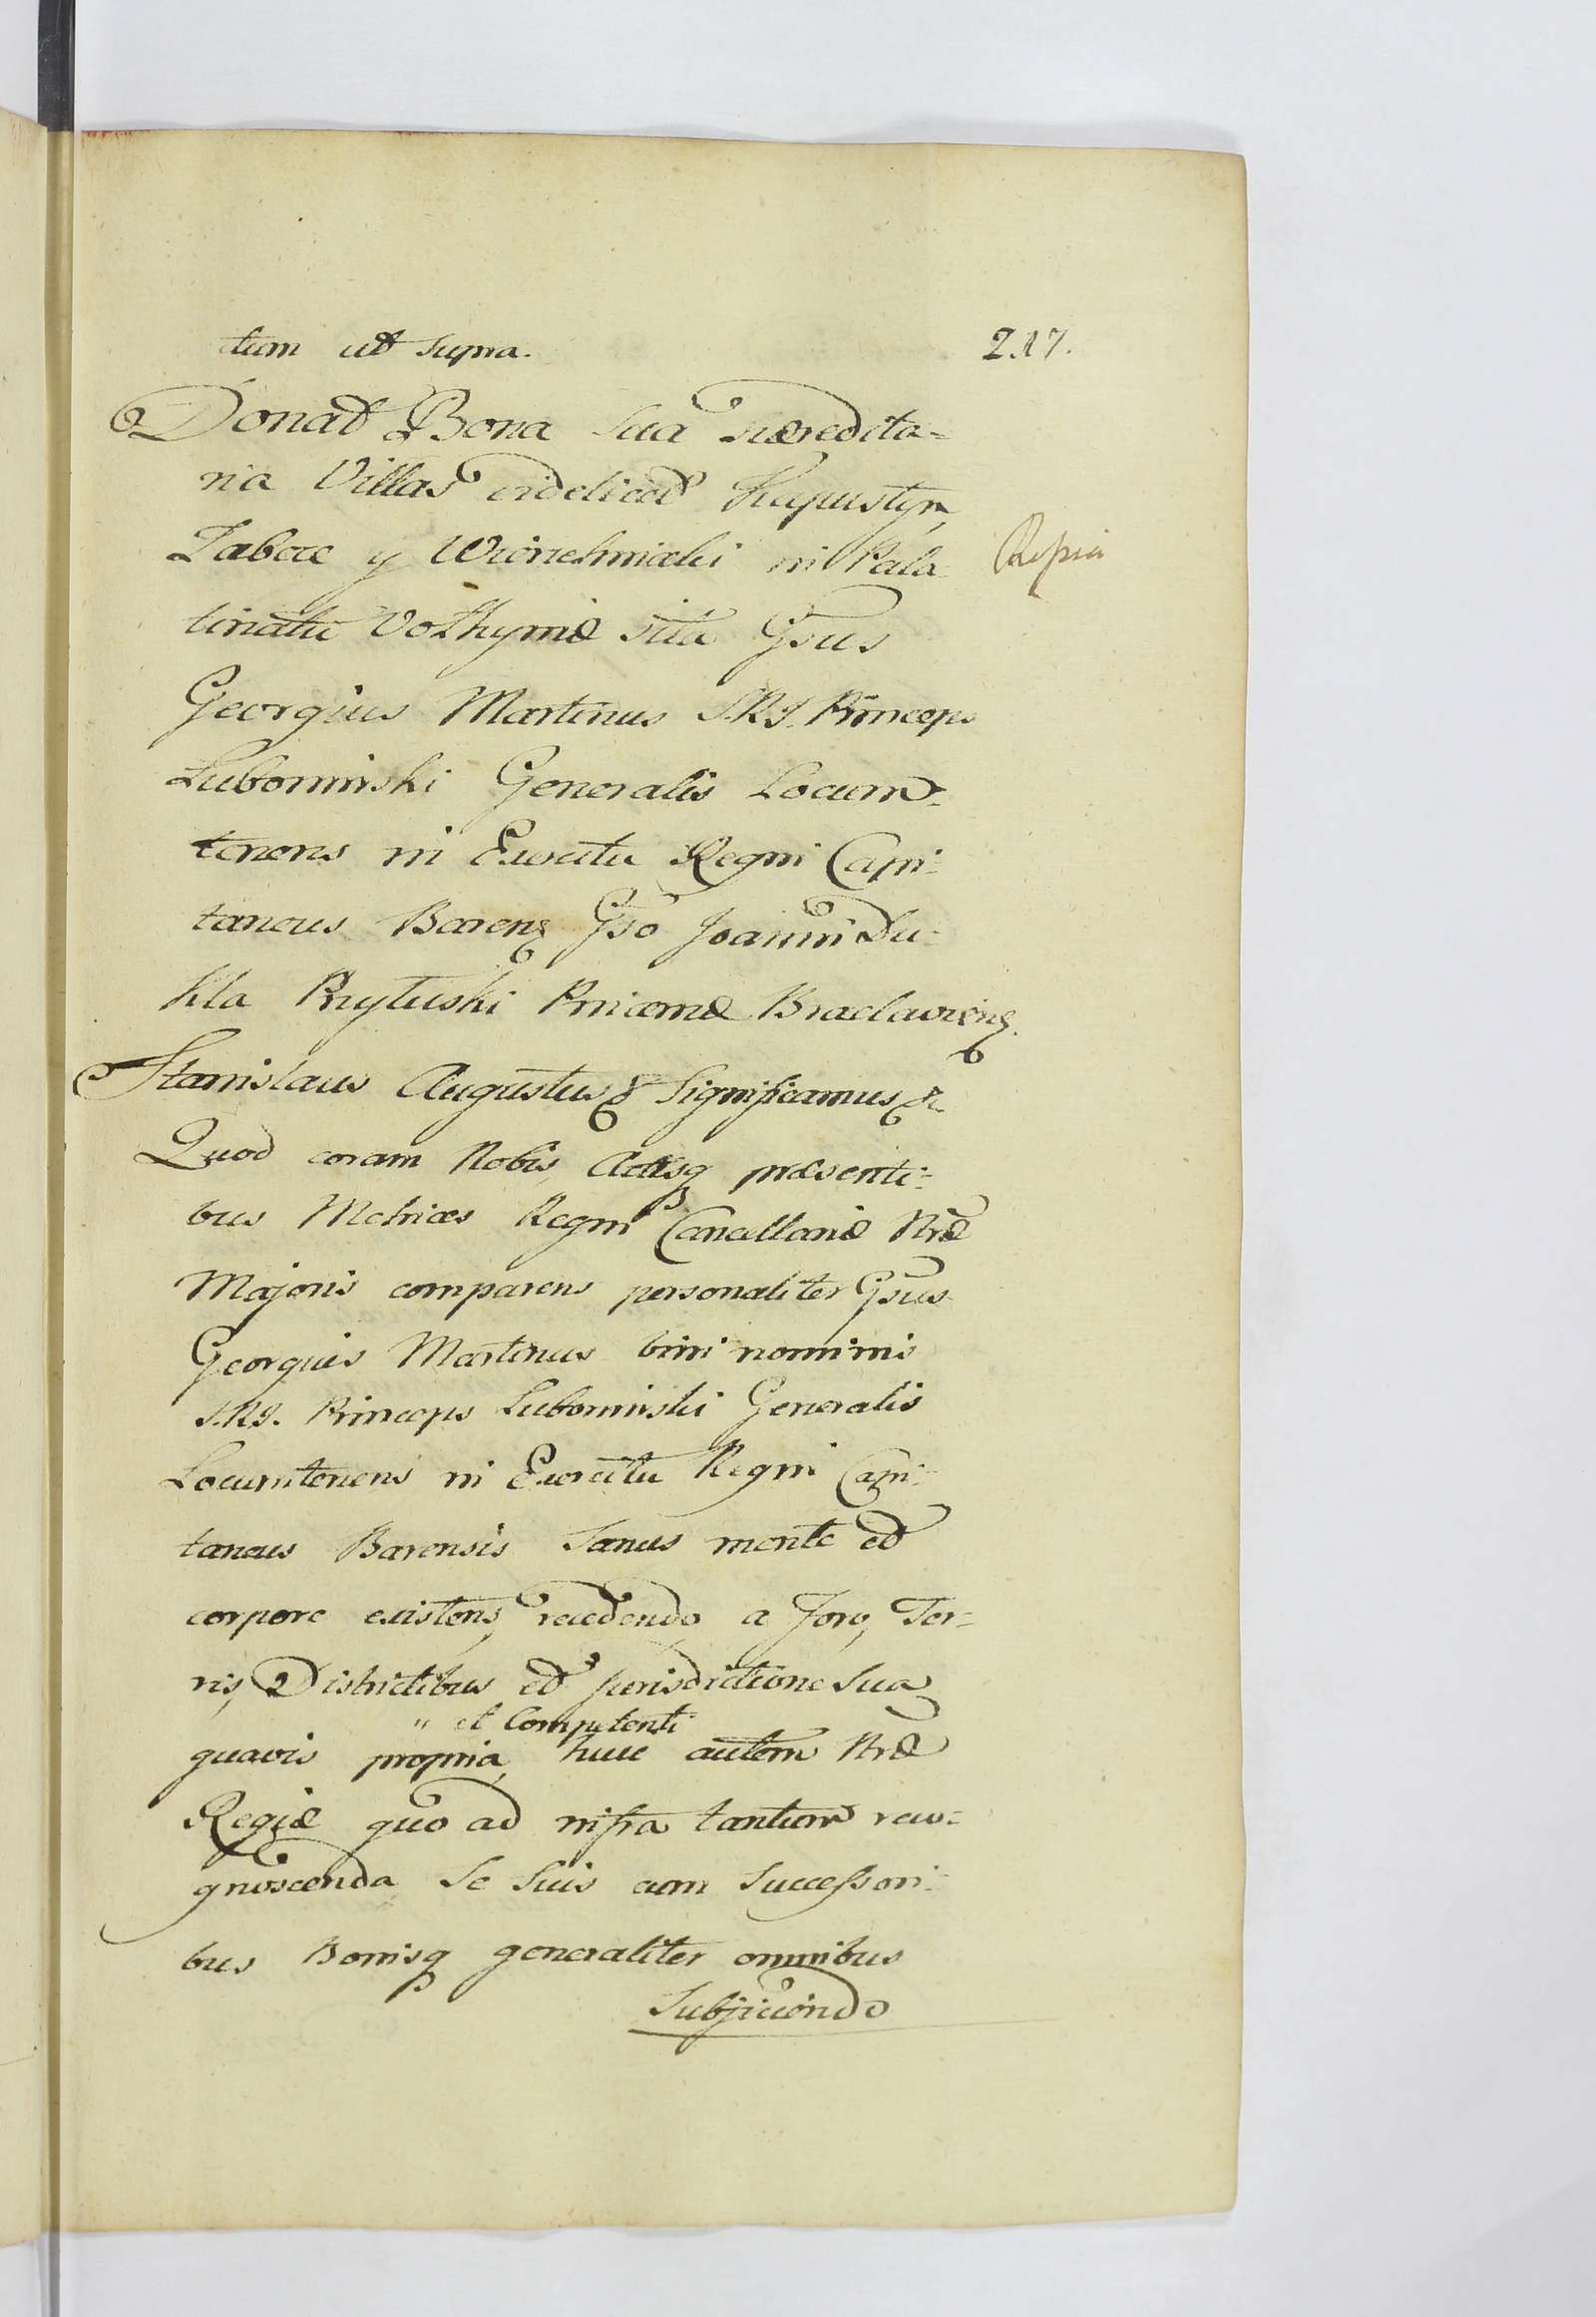 tum ut supra.
217.
Donat Bona sua hæredita=
ria Villas videlicet Kapustyn,
Zabore y Wioriehniaki in Pala=
tinatu Volhyniæ sita Gsus
Georgius Martinus S.R.I. Princeps
Lubomirski Generalis Locum=
tenens in Exercitu Regni Capi=
taneus Barens Gso Joanni Du=
kla Przytuski Pincernæ Braclaviens.
Stanislaus Augustus & Significamus &
Quod coram Nobis, Actisq præsenti=
bus Metrices Regni Cancellariæ Nræ
Majoris comparens personaliter Gsus
Georgius Martinus bini nominis
S.R.I. Princeps Lubomirski Generalis
Locumtenens in Exercitu Regni Capi=
taneus Barensis Sanus mente et
corpore existens, recedendo a Foro, Ter=
ris, Districtibus et jurisdictione sua
" et Competenti
quavis propria, huic autem Nræ
Regiæ quo ad infra tantum reco=
gnoscenda Se Suis cum Successori=
bus Bonisq generaliter omnibus
Subjiciendo